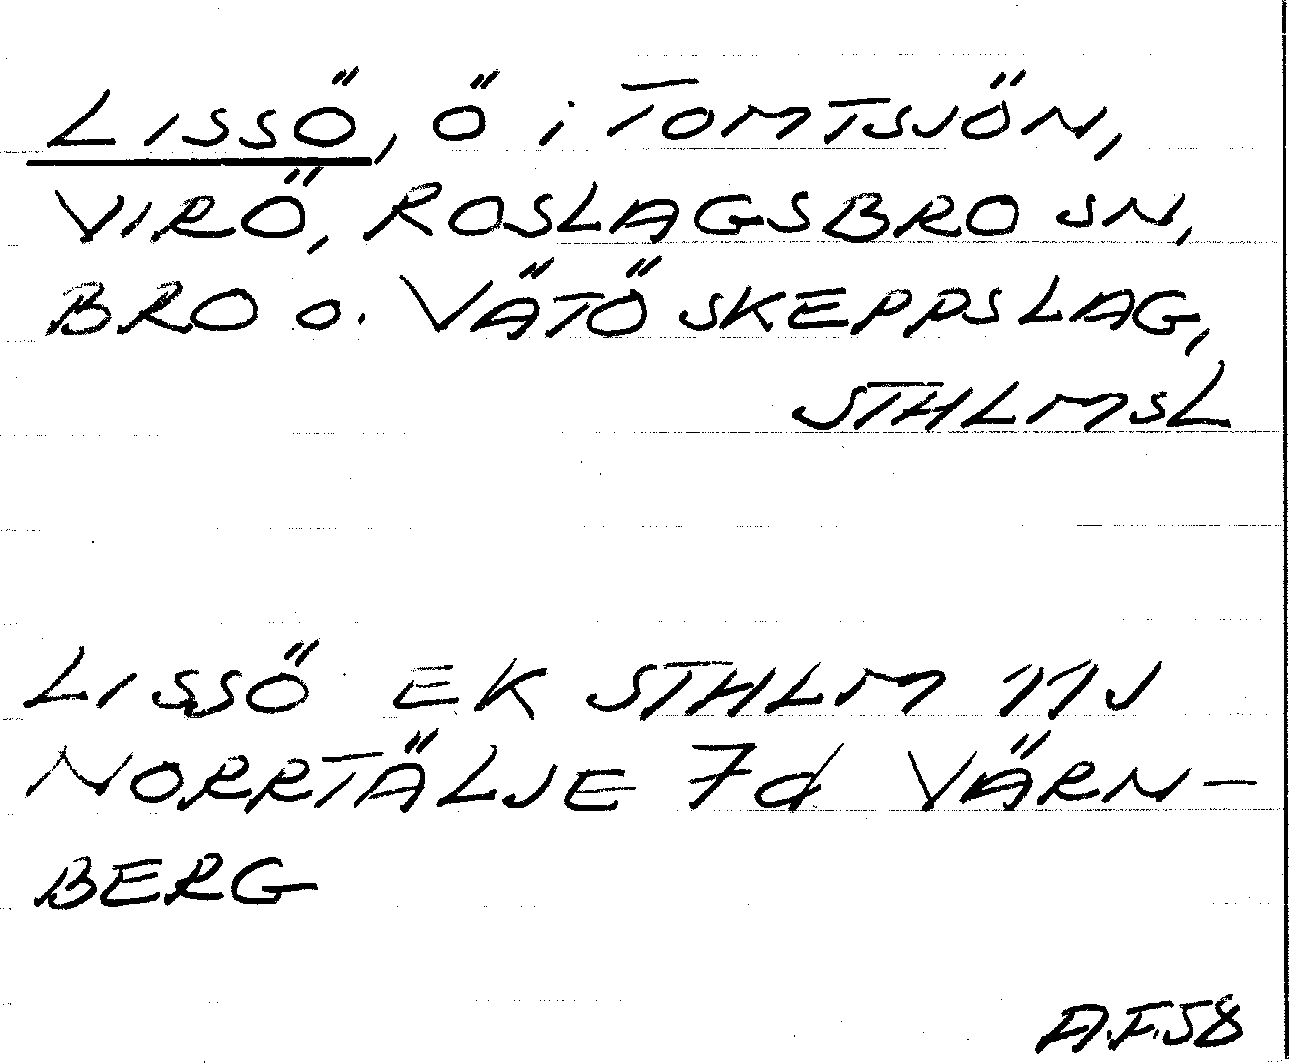 LISSÖ, Ö i TOMTSJÖN,
VIRÖ, ROSLAGSBRO SN,
BRO o. VÄTÖ SKEPPSLAG,
STHLMSL
LISSÖ EK STHLM 11J
NORRTÄLJE 7d VÄRN-
BERG
A.F.58